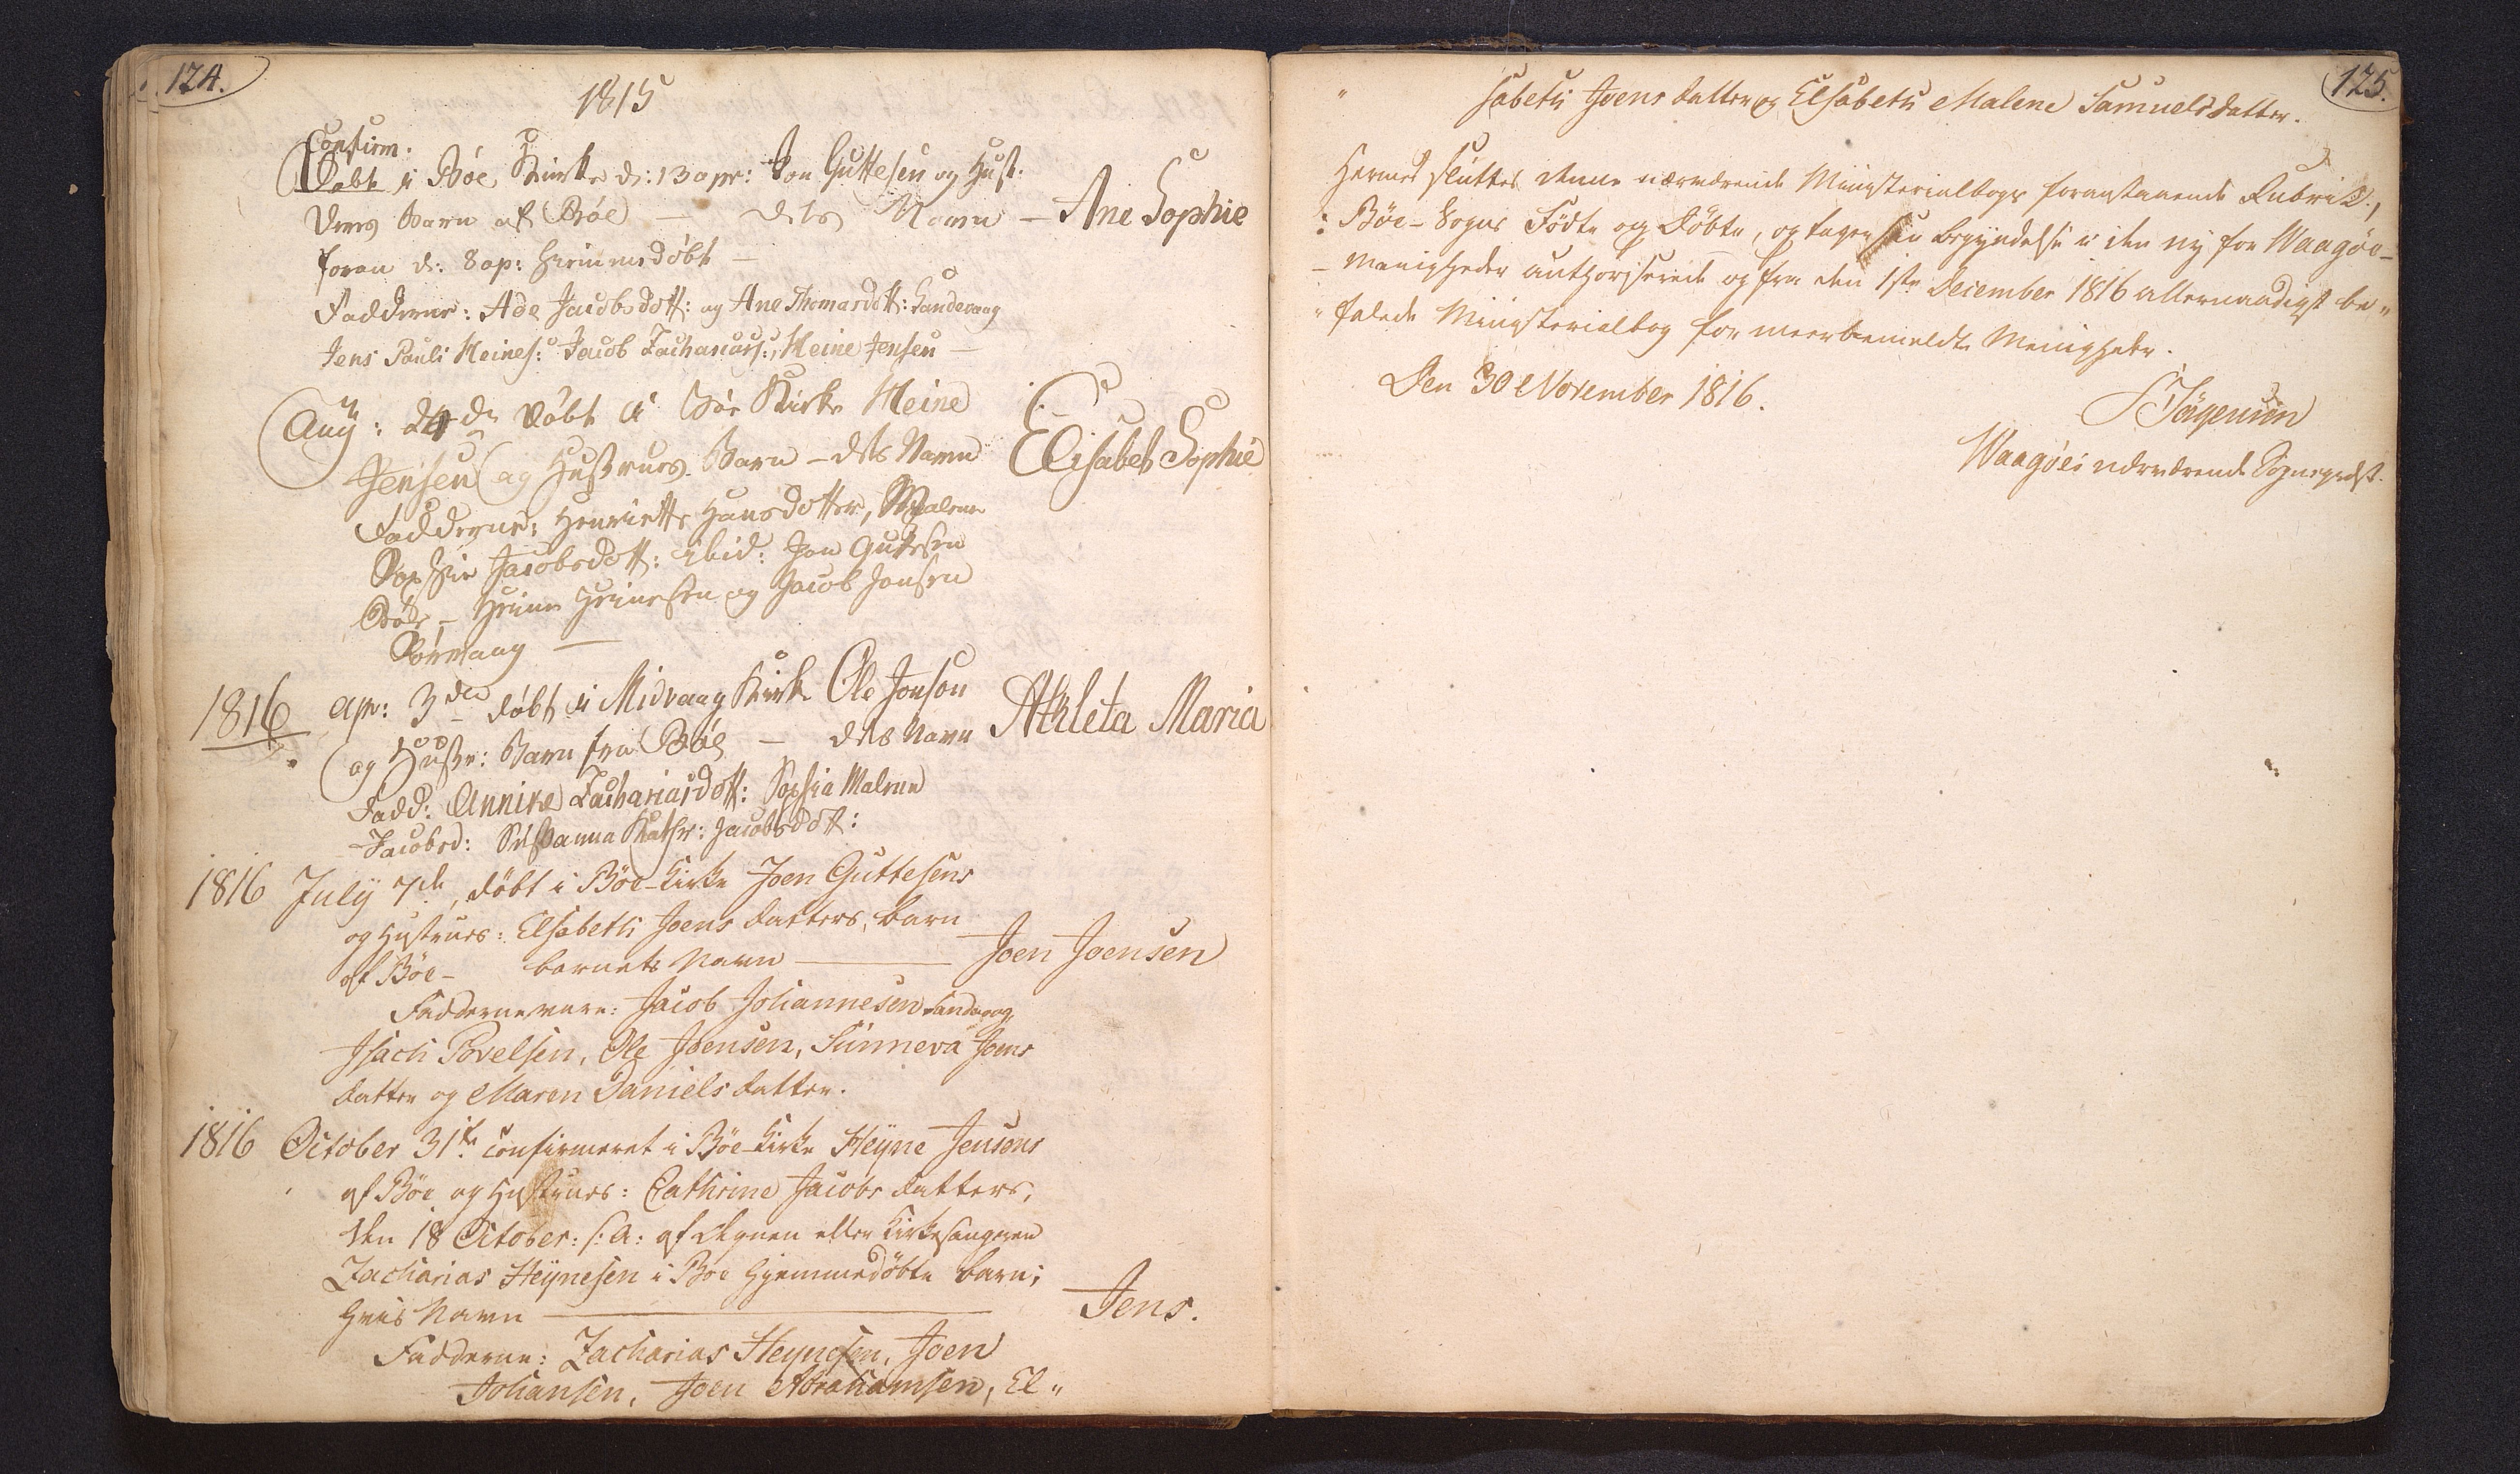 124.
1815
Confirm.
Döbt i Böe Kirke d: 13 apr: Jon Guttesen og Hust:
Deres Barn af Böe — dets Navn — Ane Sophie
foran d: 8 ap: hiemmedöbt —
Fadderne: Ade Jacobsdott: og Ane Thomasdott: Sandevaag
Jens Pauli Heines: Jacob Zacharias:, Heine Jensen —
Aug: 24de Döbt i Böe Kirke Heine
Jensen og Hustrues Barn — dets Navn Elisabet Sophie
Fadderne: Henriette Hansdotter, Malene
Sophie Jacobsdott: ibid: Jon Guttesen
Böe — Heine Heinesen og Jacob Jonsen
Sörvaag —
1816 apr: 3de döbt i Midvaag Kirke Ole Jonsen
og Hustr: Barn fra Böe — dets Navn Atleta Maria
Fadd: Annike Zachariasdott: Sophia Malene
Jacobsd: Susanna Kathr: Jacobsdott:
1816 July 7de, döbt i Böe-Kirke Joen Guttesens
og Hustrues: Elsebeth Joens datters, barn
af Böe — barnets Navn — Joen Joensen
Fadderne vare: Jacob Johannesen Sandevaag,
Isach Povelsen, Ole Joensen, Sunneva Joens
datter og Maren Daniels datter.
1816 October 31te confirmeret i Böe-Kirke Heÿne Jensens
af Böe og Hustrues: Cathrine Jacobs datters,
den 18 October: s: a: af Degnen eller Kirkesangeren
Zacharias Heÿnesen i Böe hjemmedöbte barn;
hvis Navn — Jens.
Fadderne: Zacharias Heÿnesen, Joen
Johansen, Joen Abrahamsen, El„
125.
„ sabeth Joens datter og Elsabeth Malene Samuelsdatter.
Hermed sluttes denne nærværende Ministerialbogs foranstaaende Rubrik,
: Böe-Sogns Födte og Döbte, og tager sin begyndelse i den ny for Waagöe-
- Menigheder authoriserede og fra den 1ste December 1816 allernaadigst be„
„falede Ministerialbog for meerbemeldte Menigheder.
Den 30 November 1816.
Jörgensen
Waagöes nærværende Sognepræst.